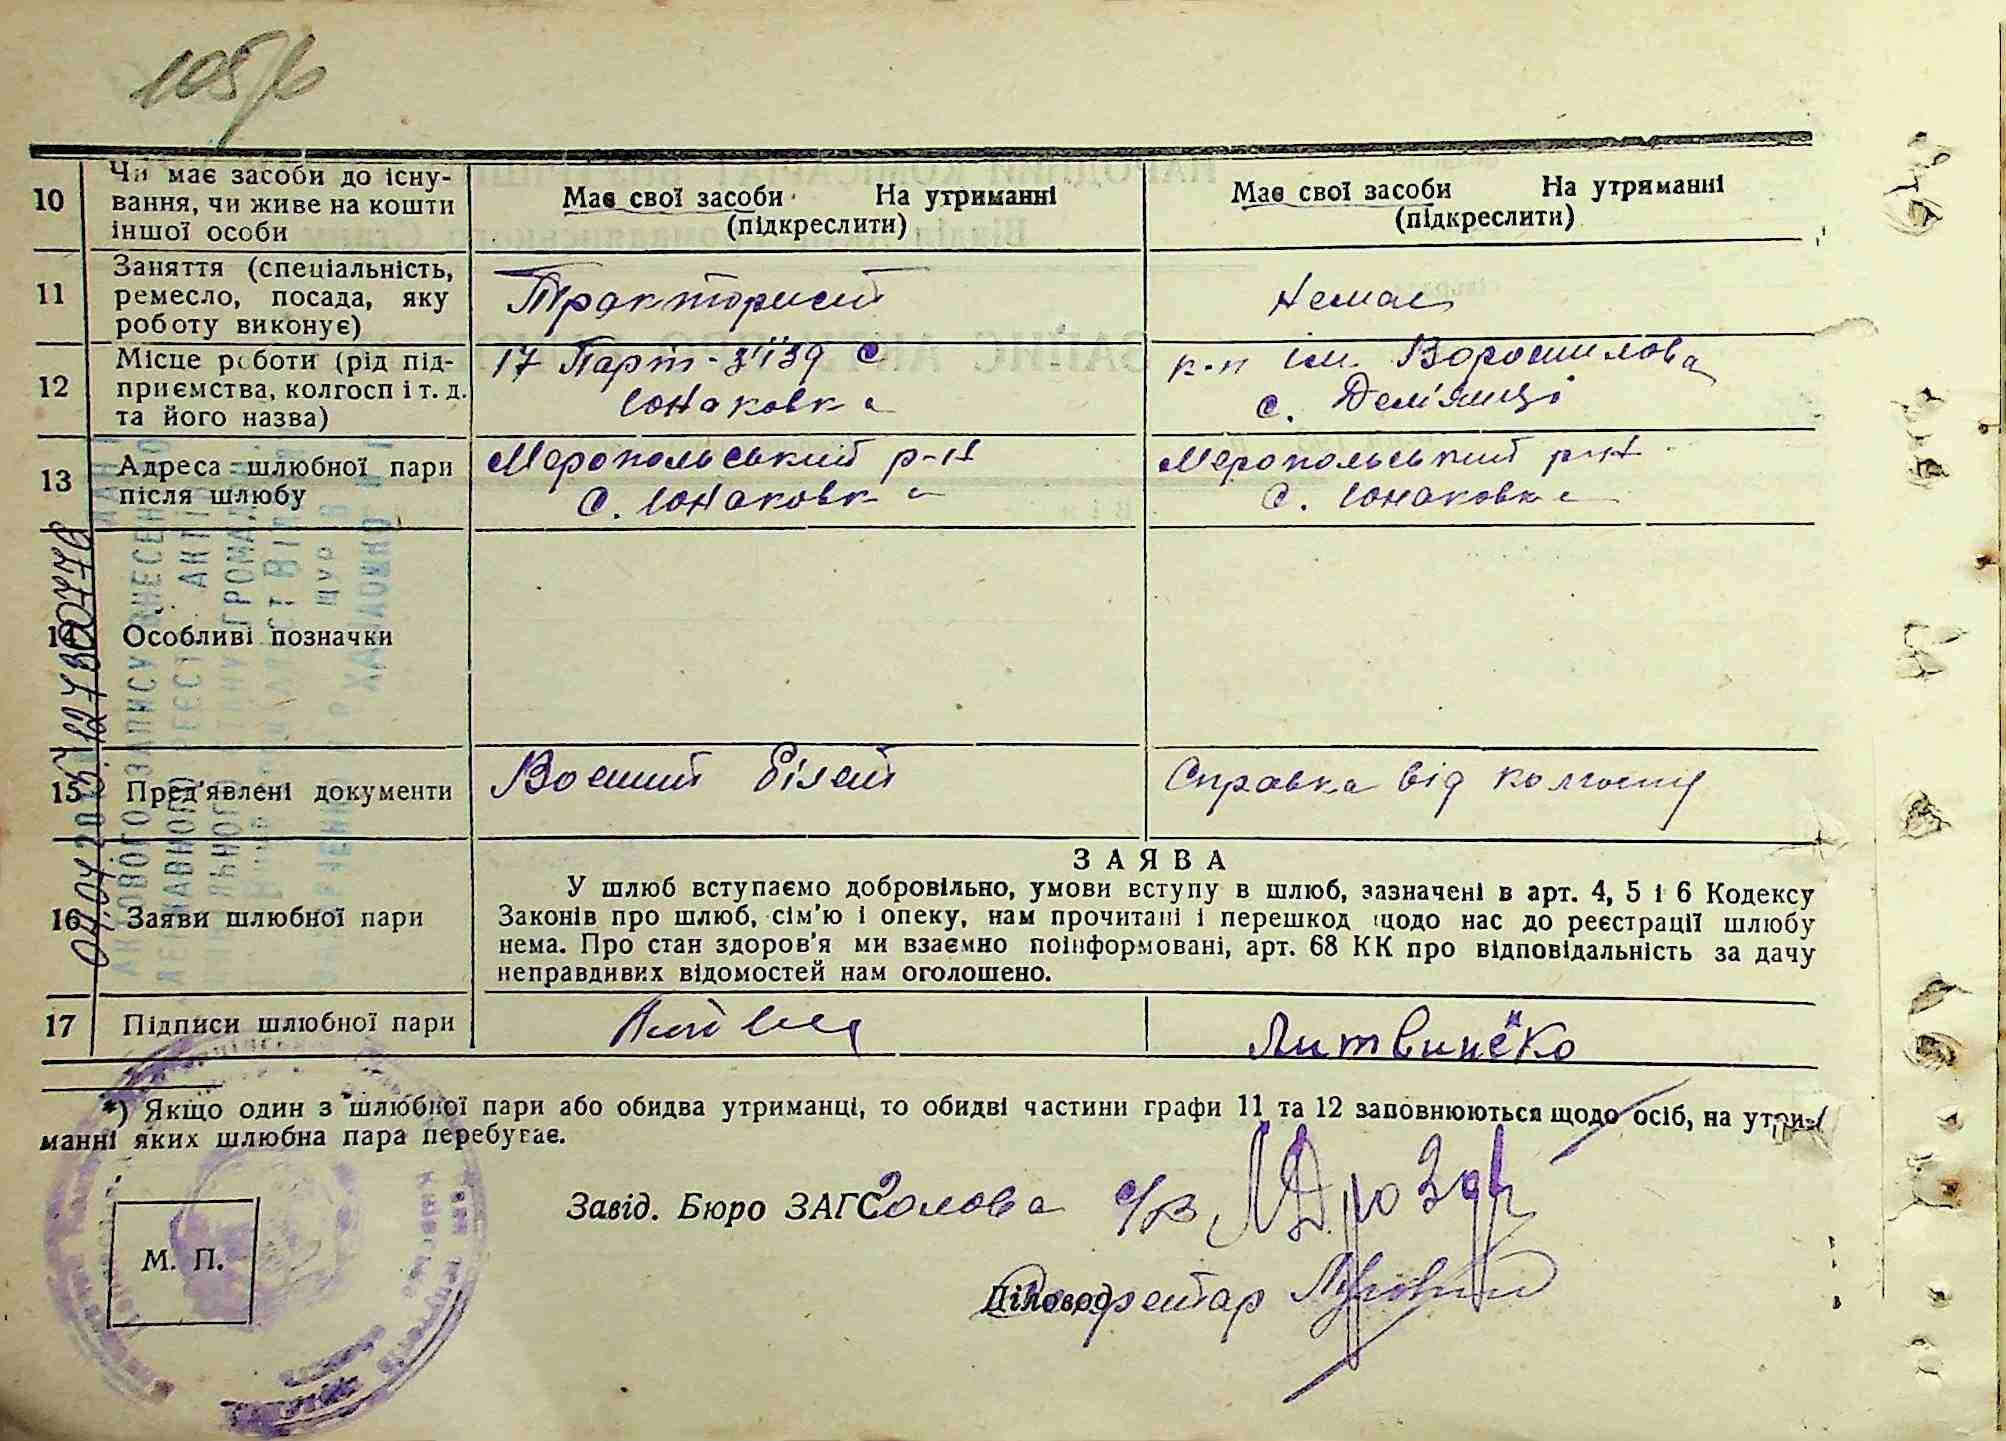 10 Чи має засоби до існу-
вання, чи живе на кошти
іншої особи
Має свої засоби На утриманні
(підкреслити)
Має свої засоби На утриманні
(підкреслити)
11 Заняття (спеціальність,
ремесло, посада, яку
роботу виконує)
Тракторист
Немає
12 Місце роботи (рід під-
приємства, колгосп і т. д.
та його назва)
17 Парт-з'їзд с
Юнаковка
к-п ім. Ворошилова
с. Дем'янці
13 Адреса шлюбної пари
після шлюбу
Меропольський р-н
с. Юнаковка
Меропольський р-н
с. Юнаковка
14 Особливі позначки
15 Пред'явлені документи
Воєнний білет
Справка від колгоспу
16 Заяви шлюбної пари
ЗАЯВА
У шлюб вступаємо добровільно, умови вступу в шлюб, зазначені в арт. 4, 5 і 6 Кодексу
Законів про шлюб, сім'ю і опеку, нам прочитані і перешкод щодо нас до реєстрації шлюбу
нема. Про стан здоров'я ми взаємно поінформовані, арт. 68 КК про відповідальність за дачу
неправдивих відомостей нам оголошено.
17 Підписи шлюбної пари
Литвинёко
*) Якщо один з шлюбної пари або обидва утриманці, то обидві частини графи 11 та 12 заповнюються щодо осіб, на утри-
манні яких шлюбна пара перебуває.
Завід. Бюро ЗАГС Голова с/в Дрозд
М. П.
Діловод Секретар